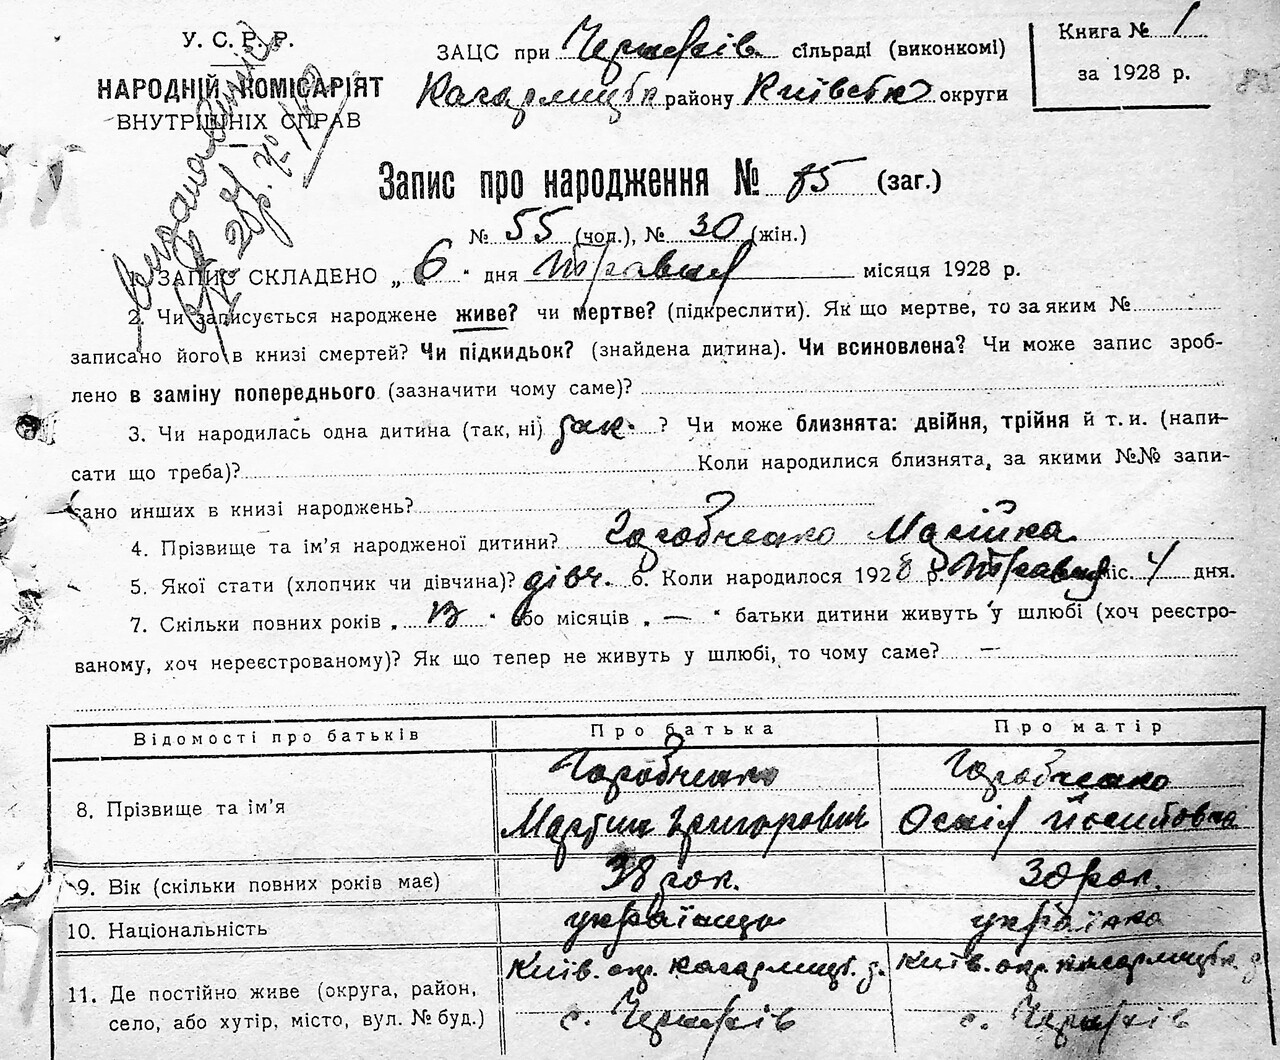 У. С. Р. Р.
НАРОДНІЙ КОМІСАРІЯТ
ВНУТРІШНІХ СПРАВ
ЗАЦС при Черняхів сільраді (виконкомі)
Кагарлицьк району Київськ округи
Книга № 1
за 1928 р.
Запис про народження № 85 (заг.)
№ 55 (чол.), № 30 (жін.)
1. ЗАПИС СКЛАДЕНО „ 6 " дня Травня місяця 1928 р.
2. Чи записується народжене живе? чи мертве? (підкреслити). Як що мертве, то за яким №
записано його в книзі смертей? Чи підкидьок? (знайдена дитина). Чи всиновлена? Чи може запис зроб-
лено в заміну попереднього (зазначити чому саме)?
3. Чи народилась одна дитина (так, ні) так ? Чи може близнята: двійня, трійня й т. и. (напи-
сати що треба)? Коли народилися близнята, за якими №№ запи-
сано инших в книзі народжень?
4. Прізвище та ім'я народженої дитини? Горобченко Марійка
5. Якої стати (хлопчик чи дівчина)? дівч. 6. Коли народилося 1928 р. Травня міс. 4 дня.
7. Скільки повних років „ 13 " або місяців „ — " батьки дитини живуть у шлюбі (хоч реєстро-
ваному, хоч нереєстрованому)? Як що тепер не живуть у шлюбі, то чому саме? —
Відомості про батьків Про батька Про матір
8. Прізвище та ім'я Горобченко Мартин Григорович Горобченко Йосиповна
9. Вік (скільки повних років має) 38 рок. 30 рок.
10. Національність українець українка
11. Де постійно живе (округа, район, Київ. окр. Кагарлицьк. р. Київ. окр. Кагарлицьк р
село, або хутір, місто, вул. № буд.) с. Черняхів с. Черняхів